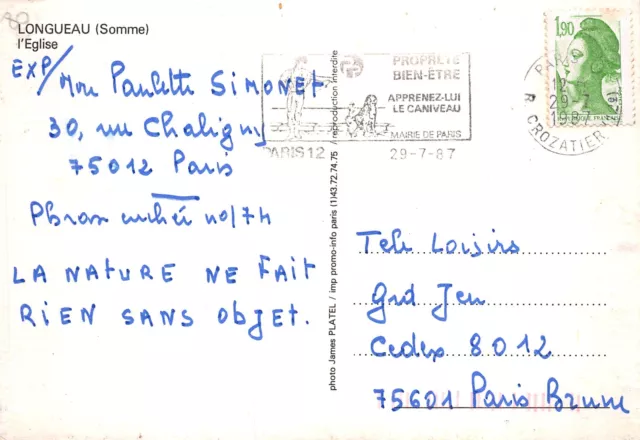 LONGUEAU (Somme)
l'Eglise
EXP/ Mme Paulette SIMONET
30, rue Chaligny
75012 Paris
Phrase cachée no/74
LA NATURE NE FAIT
RIEN SANS Objet.
photo James PLATEL / imp promo-info paris (1)43.72.74.75 / reproduction interdite
PROPRETÉ
BIEN-ÊTRE
APPRENEZ-LUI
LE CANIVEAU
MAIRIE DE PARIS
PARIS 12
29-7-87
1,90
PARIS
12
29-7
1987
R. CROZATIER
Tele Loisirs
Grd Jeu
Cedex 8012
75601 Paris Brune